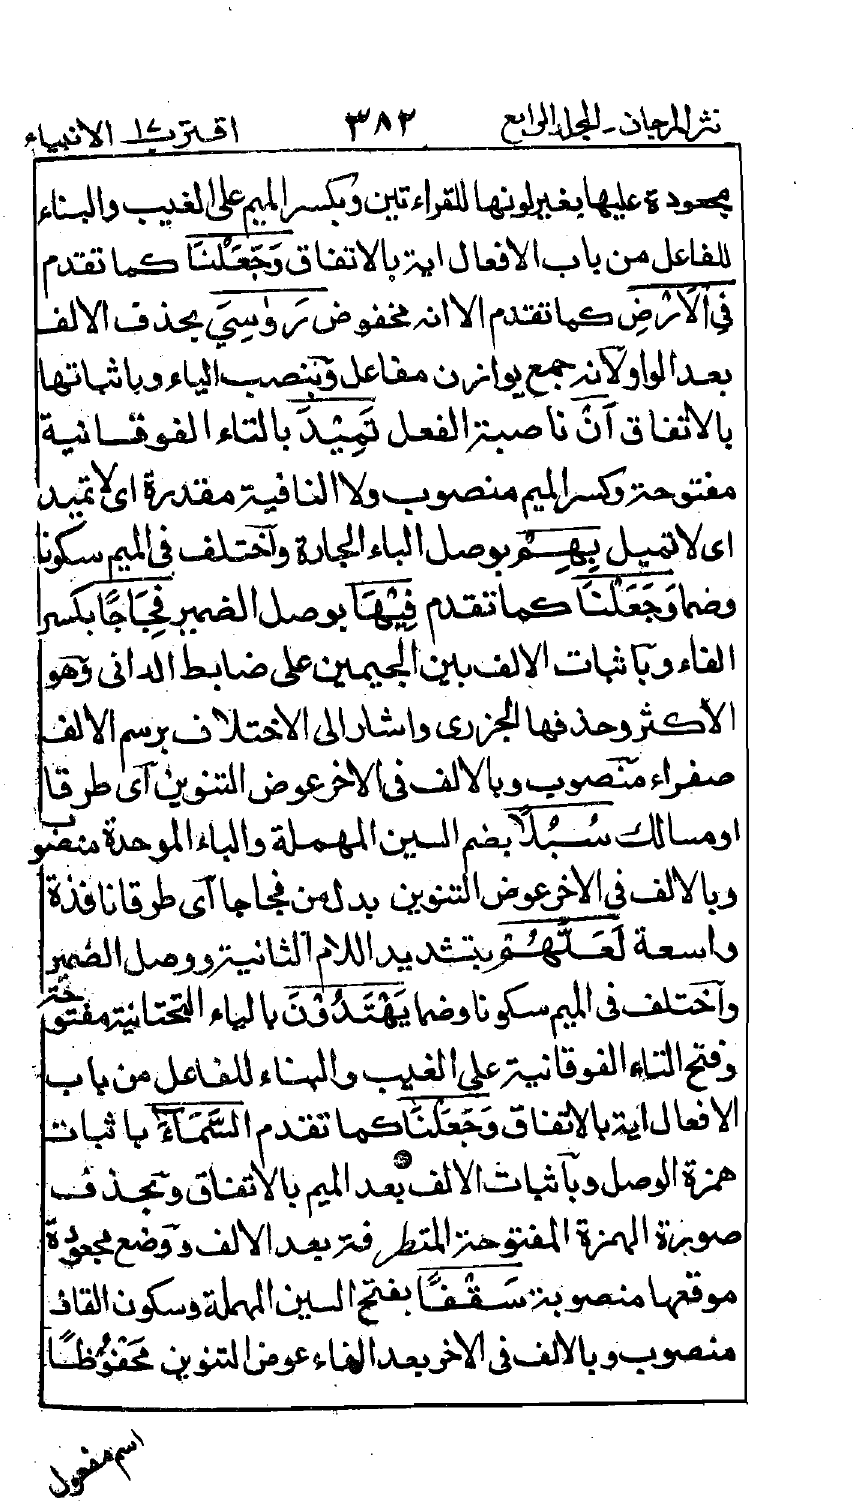 نثر المرجان ـ المجلد الرابع ٣٨٢ اقترب ١٧ الانبياء
مجعودة عليها بغير لونها للقراءتين وبكسر الميم على الغيب والبناء
للفاعل من باب الافعال اية بالاتفاق وَجَعَلْنَا كما تقدم
فِى الْاَرْضِ كما تقدم الا انه مخفوض رَوٰسِيَ بحذف الالف
بعد الواو لانه جمع يوازن مفاعل وبنصب الياء وباثباتها
بالاتفاق اَنْ ناصبة الفعل تَمِيْدَ بالتاء الفوقانية
مفتوحة وكسر الميم منصوب ولا النافية مقدرة اى لا تميد
اى لا تميل بِهِمْ بوصل الباء الجارة واختلف فى الميم سكونا
وضما وَجَعَلْنَا كما تقدم فِيْهَا بوصل الضمير فِجَاجًا بكسر
الفاء وباثبات الالف بين الجيمين على ضابط الدانى وهو
الاكثر وحذفها الجزرى واشار الى الاختلاف برسم الالف
صفراء منصوب وبالالف فى الاخر عوض التنوين اى طرقا
او مسالك سُبُلًا بضم السين المهملة والباء الموحدة منصوب
وبالالف فى الاخر عوض التنوين بدل من فجاجا اى طرقا نافذة
واسعة لَعَلَّهُمْ بتشديد اللام الثانية ووصل الضمير
واختلف فى الميم سكونا وضما يَهْتَدُوْنَ بالياء التحتانية مفتوحة
وفتح التاء الفوقانية على الغيب والبناء للفاعل من باب
الافعال اية بالاتفاق وَجَعَلْنَا كما تقدم السَّمَآءَ باثبات
همزة الوصل وباثبات الالف بعد الميم بالاتفاق وبحذف
صورة الهمزة المفتوحة المتطرفة بعد الالف ووضع مجعودة
موقعها منصوبة سَقْفًا بفتح السين المهملة وسكون القاف
منصوب وبالالف فى الاخر بعد الفاء عوض التنوين مَحْفُوْظًا
اسم مفعول